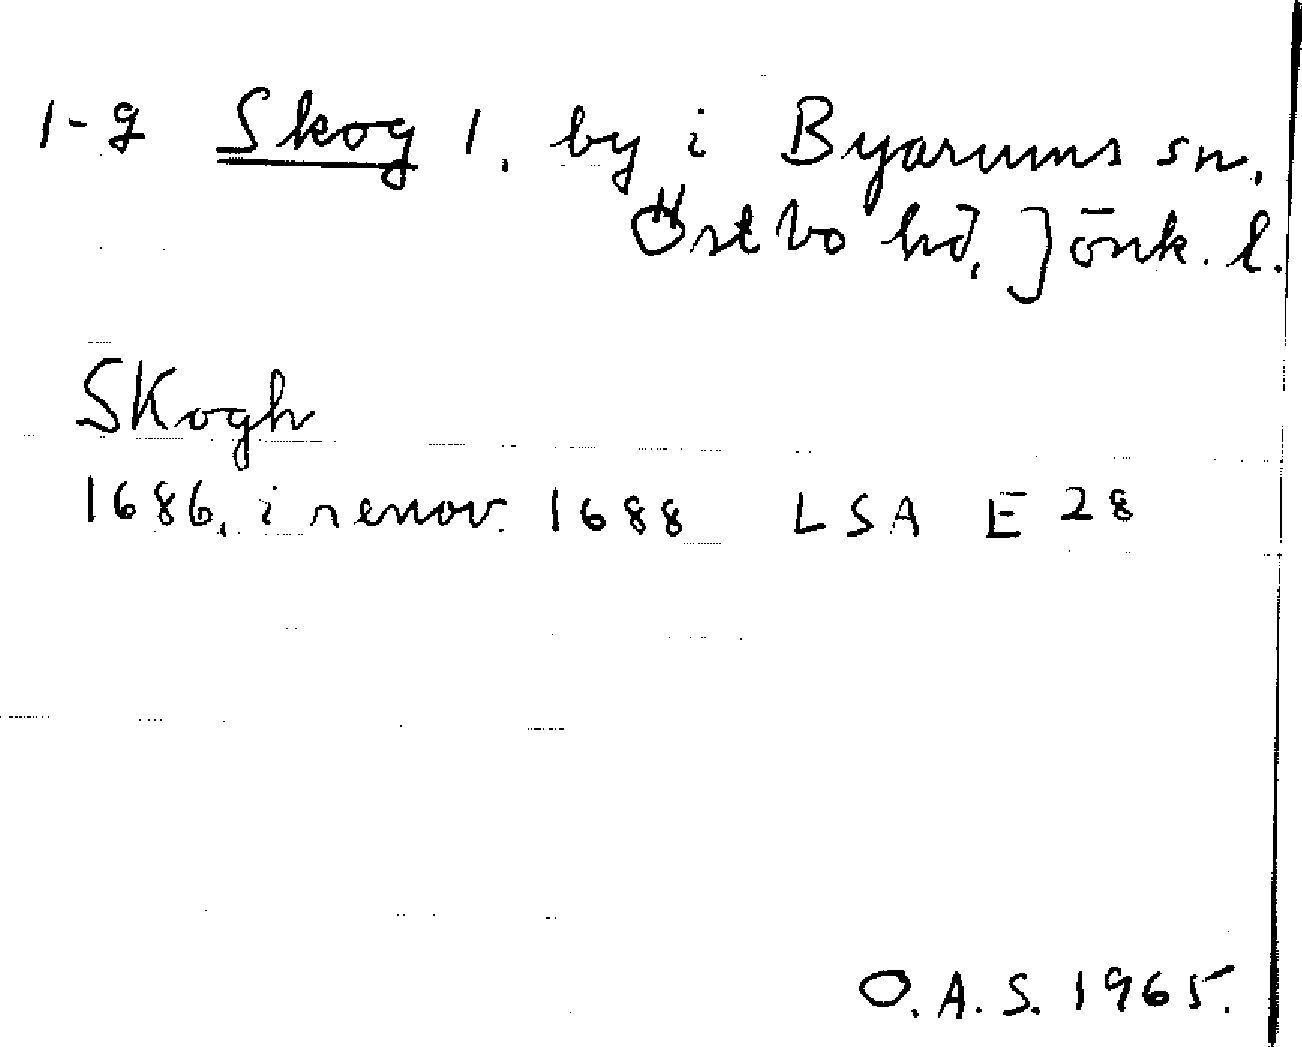 1-g Skog 1. by i Byarums sn.
Östbo hd, Jönk. l.
Skogh
1686, i renov. 1688 LSA E 28
O.A.S. 1965.